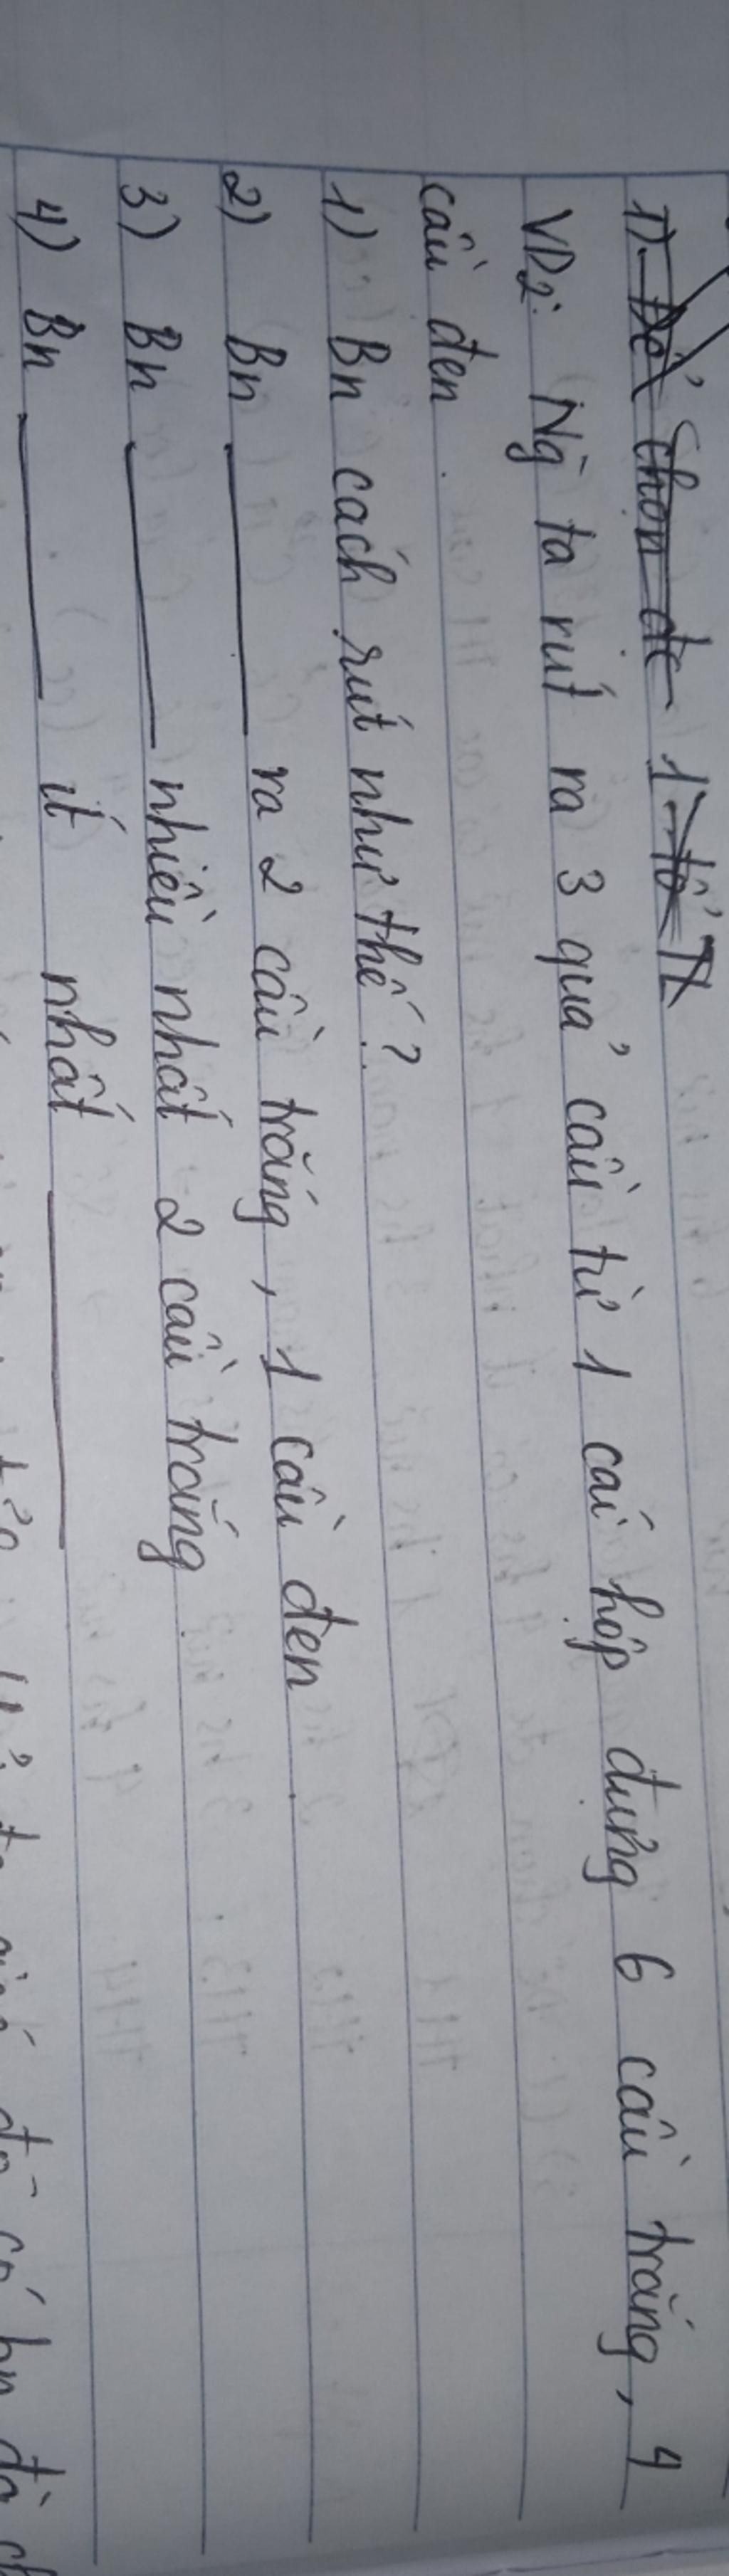 1) Để chọn đc 1 tổ TL
VD2: Ng ta rút ra 3 quả cầu từ 1 cái hộp đựng 6 cầu trắng, 4
cầu đen.
1) Bn cách rút như thế?
2) Bn ______ ra 2 cầu trắng, 1 cầu đen
3) Bn ______ nhiều nhất 2 cầu trắng
4) Bn ______ ít nhất ______